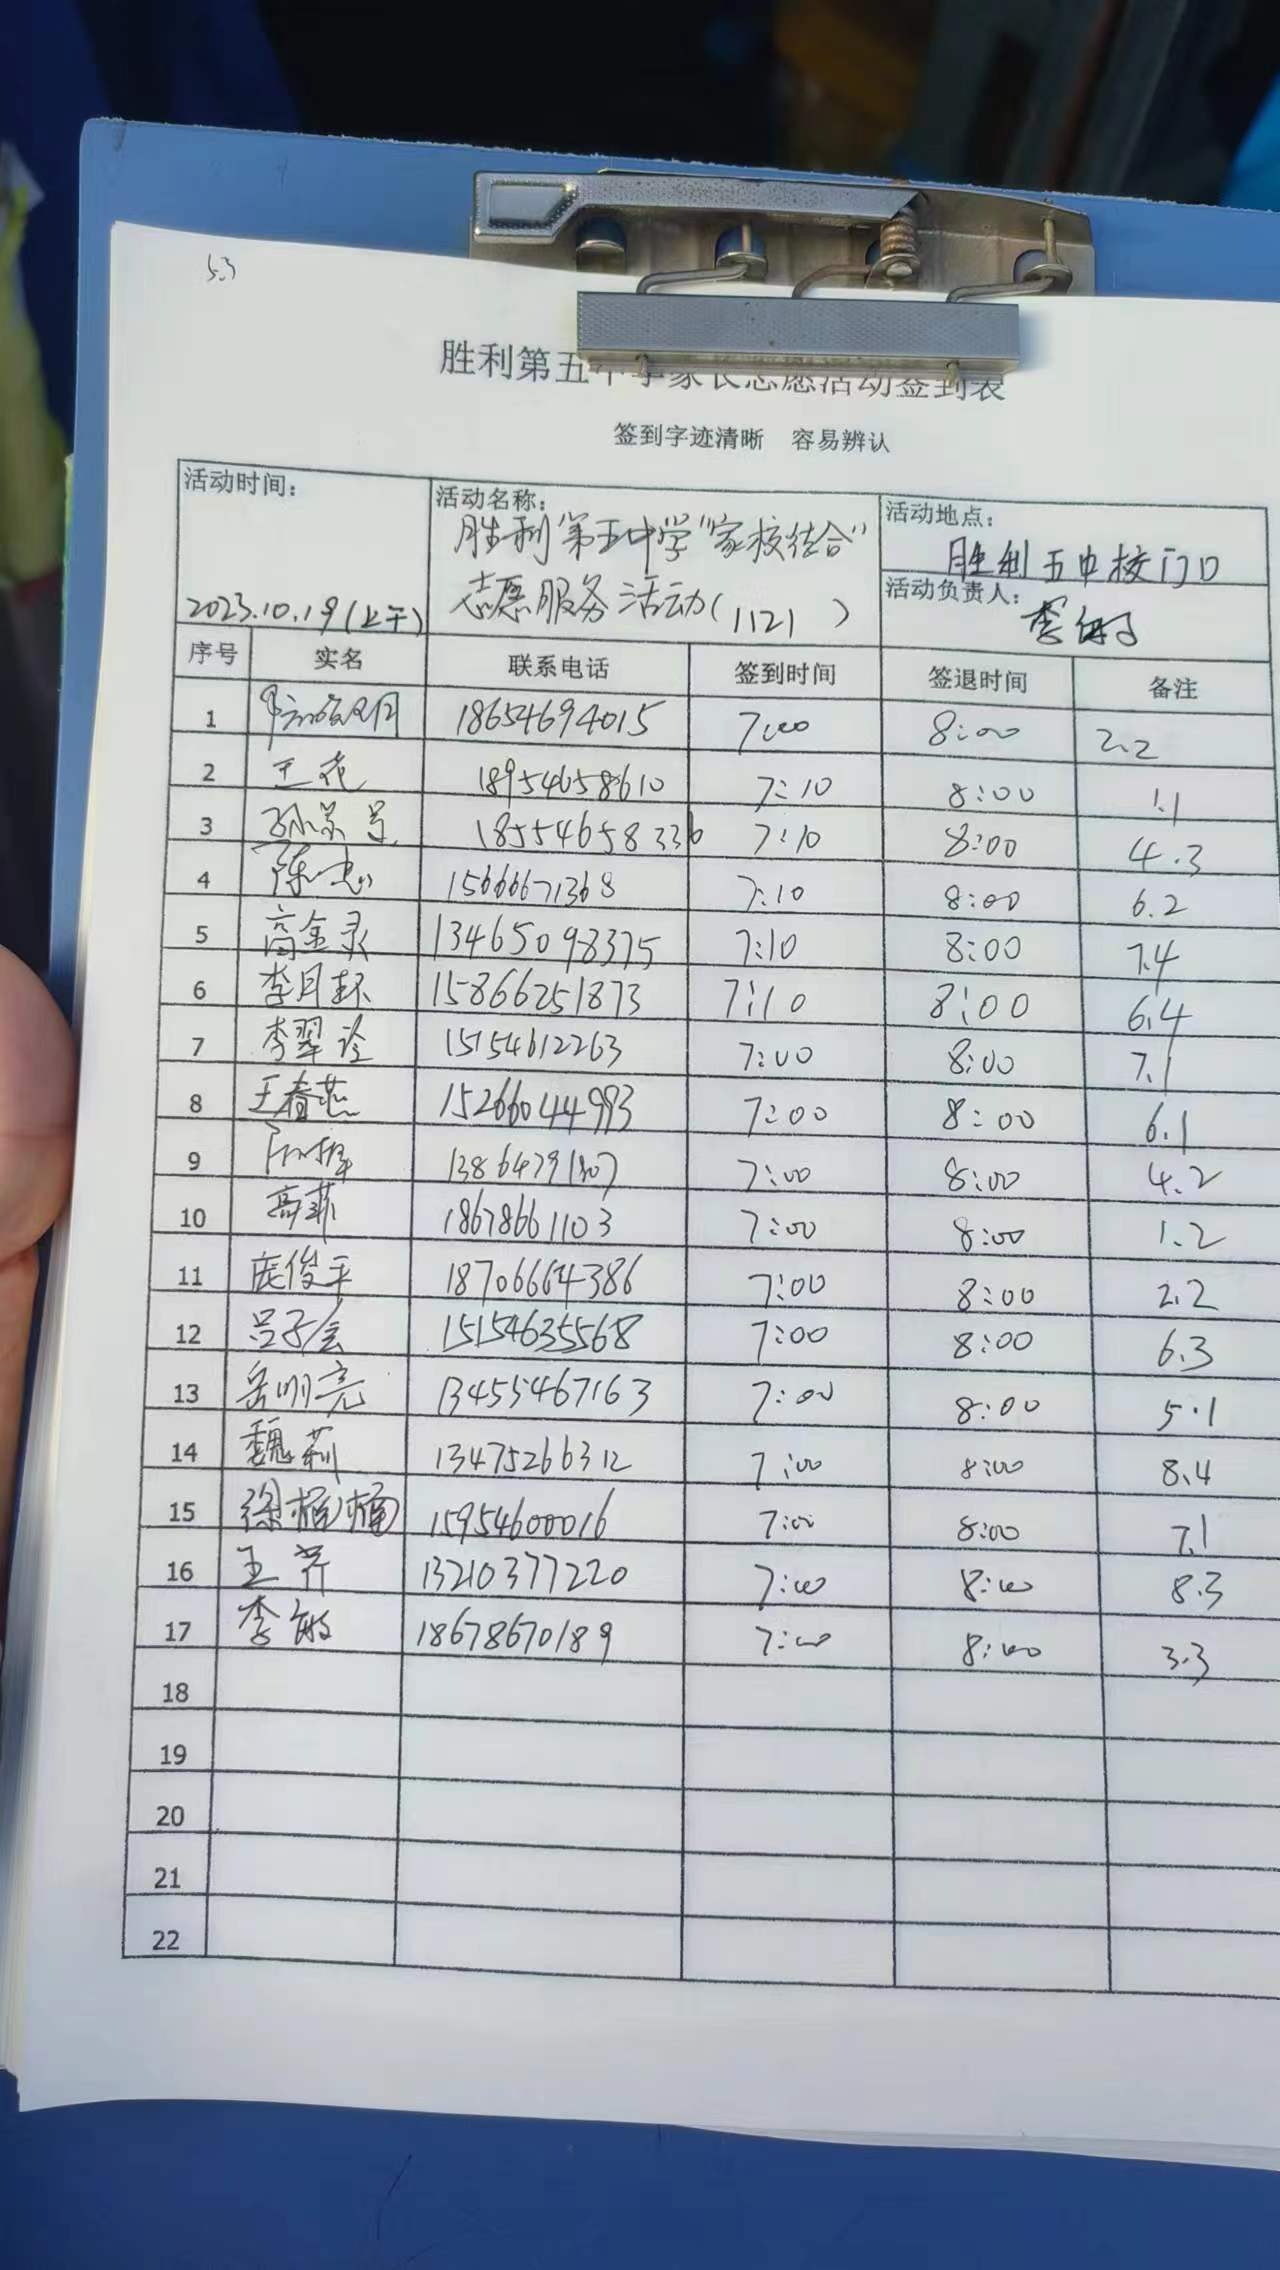 5.3
胜利第五中学家长志愿活动签到表
签到字迹清晰 容易辨认
活动时间： 2023.10.19(上午)
活动名称： 胜利第五中学"家校结合"
志愿服务活动(1121)
活动地点： 胜利五中校门口
活动负责人： 李
序号 实名 联系电话 签到时间 签退时间 备注
1 18654694015 7:00 8:00 2.2
2 王花 18954658610 7:10 8:00 1.1
3 孙景 18554658336 7:10 8:00 4.3
4 陈 15666671368 7:10 8:00 6.2
5 高金录 13465098375 7:10 8:00 7.4
6 李月环 15866251873 7:10 8:00 6.4
7 李翠 15154612263 7:00 8:00 7.1
8 王春燕 15266044993 7:00 8:00 6.1
9 13864791307 7:00 8:00 4.2
10 高菲 18678661103 7:00 8:00 1.2
11 庞俊平 18706664386 7:00 8:00 2.2
12 吕子会 15154635568 7:00 8:00 6.3
13 岳明亮 13455467163 7:00 8:00 5.1
14 魏莉 13475266312 7:00 8:00 8.4
15 徐楠楠 15954600016 7:00 8:00 7.1
16 王芹 13210377220 7:00 8:00 8.3
17 李敏 18678670189 7:00 8:00 3.3
18
19
20
21
22